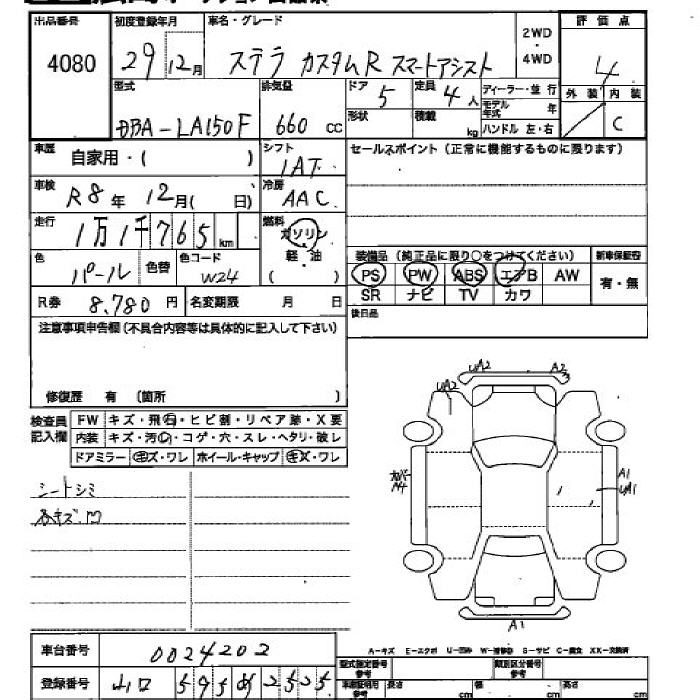 出品番号 初度登録年月 車名・グレード 2WD・4WD 評価点
4080 29 12月 ステラ カスタムR スマートアシスト 4
型式 排気量 ドア 5 定員 4人 ディーラー・並行 外装 内装
DBA-LA150F 660 cc 形状 積載 kg モデル年式 年 ハンドル 左・右 C
車歴 自家用・( ) シフト 1AT セールスポイント(正常に機能するものに限ります)
車検 R8年 12月( 日) 冷房 AAC
走行 1万1千765km 燃料 ガソリン 軽油 ( )
色 パール 色替 色コード W24
装備品(純正品に限り○をつけてください) 新車保証書
PS PW ABS エアB AW 有・無
SR ナビ TV カワ
R券 8,780円 名変期限 月 日
後日品
注意事項申告欄(不具合内容等は具体的に記入して下さい)
修復歴 有 (箇所 )
検査員記入欄 FW キズ・飛石・ヒビ割・リペア跡・X要
内装 キズ・汚・コゲ・穴・スレ・ヘタリ・破レ
ドアミラー キズ・ワレ ホイール・キャップ キズ・ワレ
シートシミ
キズ.凹
UA2 A2
UA2
A4
A1
UA1
A1
A-キズ E-エクボ U-凹み W-補修跡 S-サビ C-腐食 XX-交換済
車台番号 0024202
登録番号 山口 2525
型式指定番号 参考 類別区分番号 参考
車庫証明用 参考 長さ cm 幅 cm 高さ cm